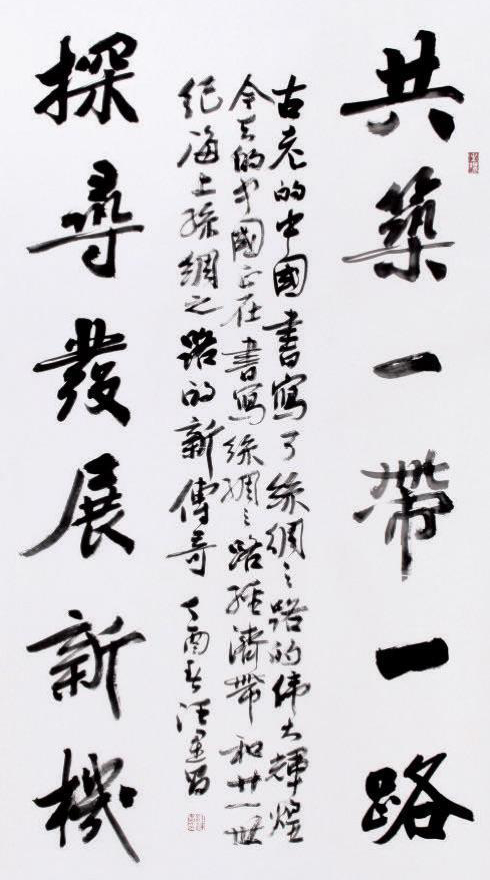 共築一帶一路
古老的中國書寫了絲綢之路的伟大輝煌
今天的中國正在書寫絲綢之路經濟帶和廿一世
紀海上絲綢之路的新傳奇 丁酉春汪運昌
探尋發展新機